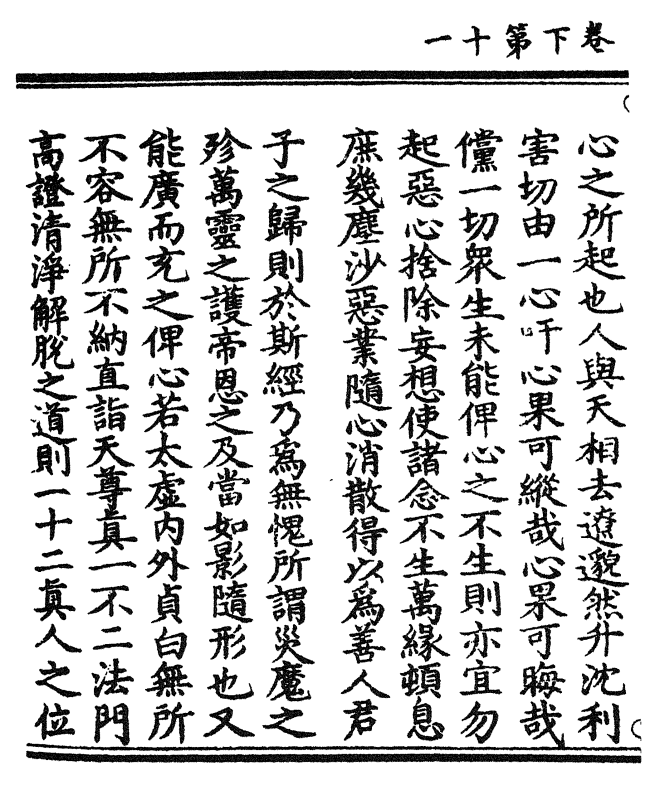 卷下第十一
心之所起也人與天相去遼邈然升沈利
害切由一心吁心果可縱哉心果可晦哉
儻一切衆生未能俾心之不生則亦宜勿
起惡心捨除妄想使諸念不生萬緣頓息
庶幾塵沙惡業隨心消散得以爲善人君
子之歸則於斯經乃爲無愧所謂災魔之
殄萬靈之護帝恩之及當如影隨形也又
能廣而充之俾心若太虛內外貞白無所
不容無所不納直詣天尊真一不二法門
高證清淨解脫之道則一十二真人之位